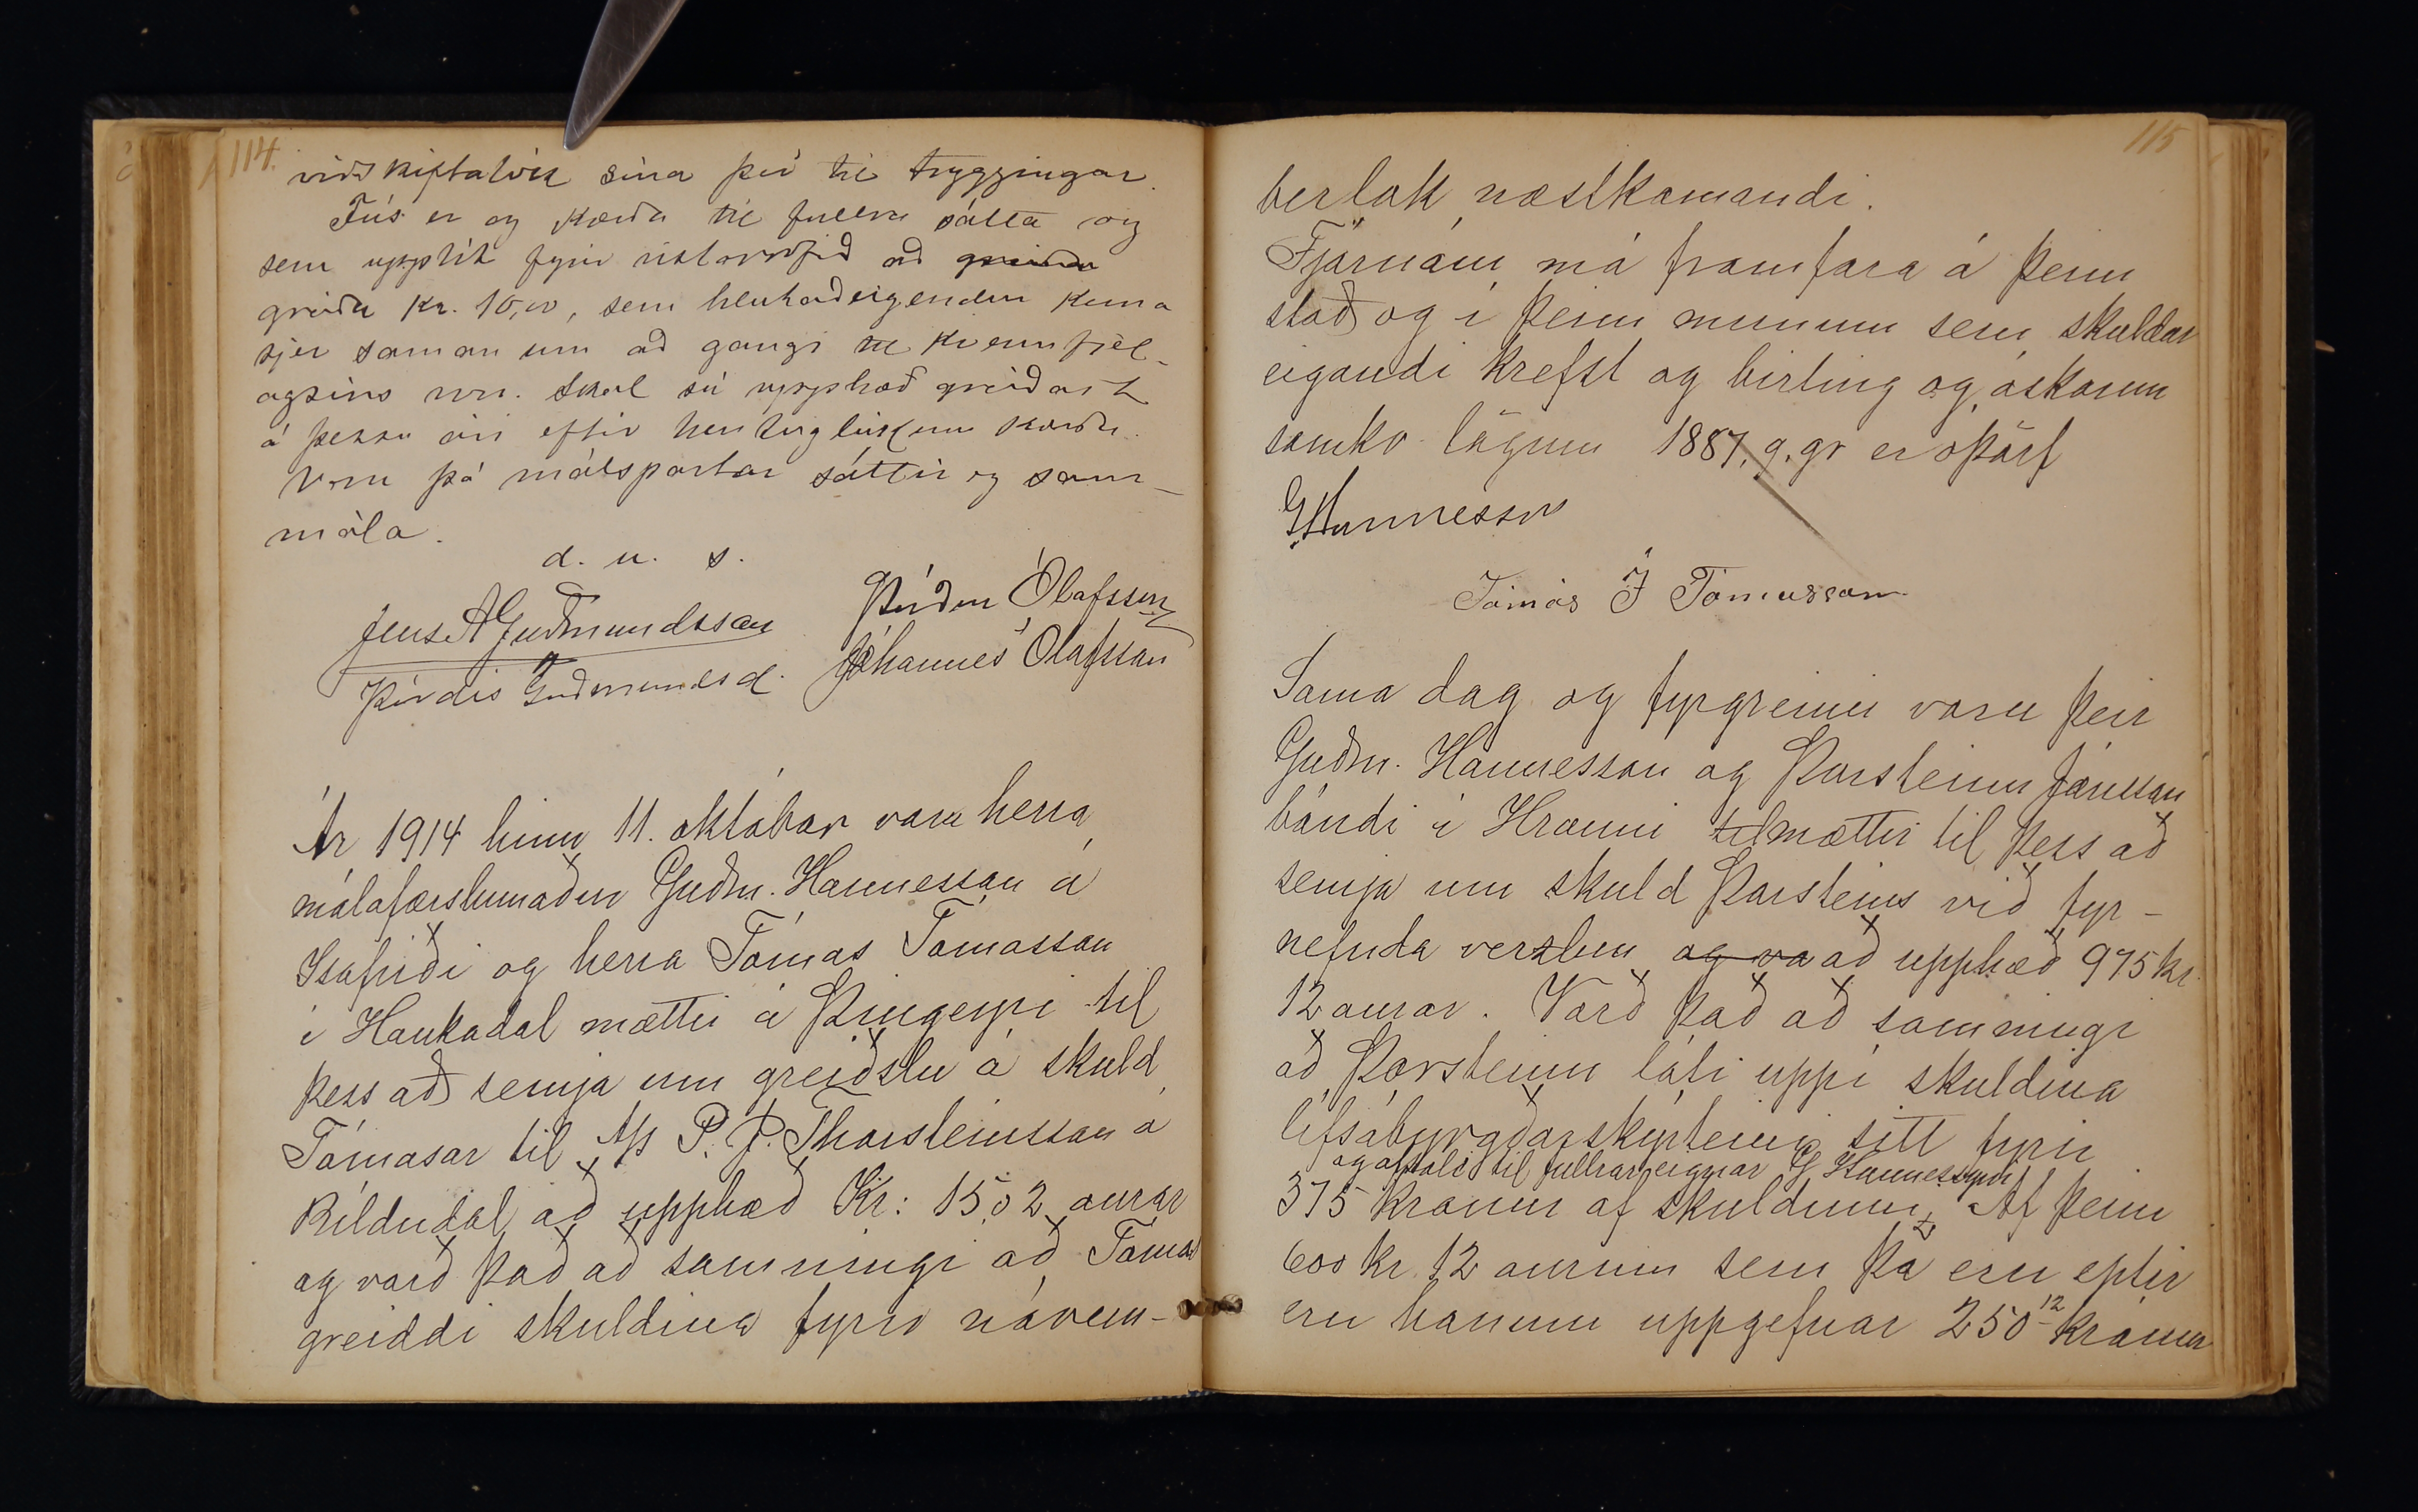 114.
viðskiftalvík sína því til tryggingar.
Fús er og kærða til fullra sátta og
sem upplát fyrir útlovrfið að greiða
greiða kr. 10,00, sem hlutaðeigendur koma
sjer saman um að gangi til kvennfjel-
agsins hér. Skal sú upphæð greiðast
á þessu ári eftir hentugleikum kærðu.
Voru þá málspartar sáttir og sam-
mála.
d. u. s.
Jens A Guðmundsson
Þuríður Ólafsson
Þórdís Guðmundsd.
Jóhannes Ólafsson
Ár 1914 hinn 11. október voru herra
málafærslumaður Guðm. Hannesson á
Ísafirði og herra Tómas Tómasson
í Haukadal mættir á Þingeyri til
þess að semja um greiðslu á skuld
Tómasar til A/s P. J. Thorsteinsson á
Bíldudal að upphæð Kr: 15,02 aurar
og varð það að samningi að Tómas
greiddi skuldina fyrir nóvem-
115
berlok næstkomandi.
Fjárnám má framfara á þeim
stað og í þeim munum sem skuldar
eigandi krefst og birting og áskorun
samkv. lögum 1887, 9. gr er óþörf
G Hannesson
Tómás J Tómasson
Sama dag og fyrgreinir voru þeir
Guðm. Hannesson og Þorsteinn Jónsson
bóndi í Hrauni til mættir til þess að
semja um skuld Þorsteins við fyr-
nefnda verzlun og va að upphæð 975 kr.
12 aurar. Varð það að samningi
að Þorsteinn láti uppí skuldina
lífsábyrgðarskýrteini sitt fyrir
og afsali til fullrar eignar G Hannessyni
375 krónum af skuldinni. Af þeim
600 kr. 12 aurum sem þá eru eptir
eru honum uppgefnar 250 12 krónur